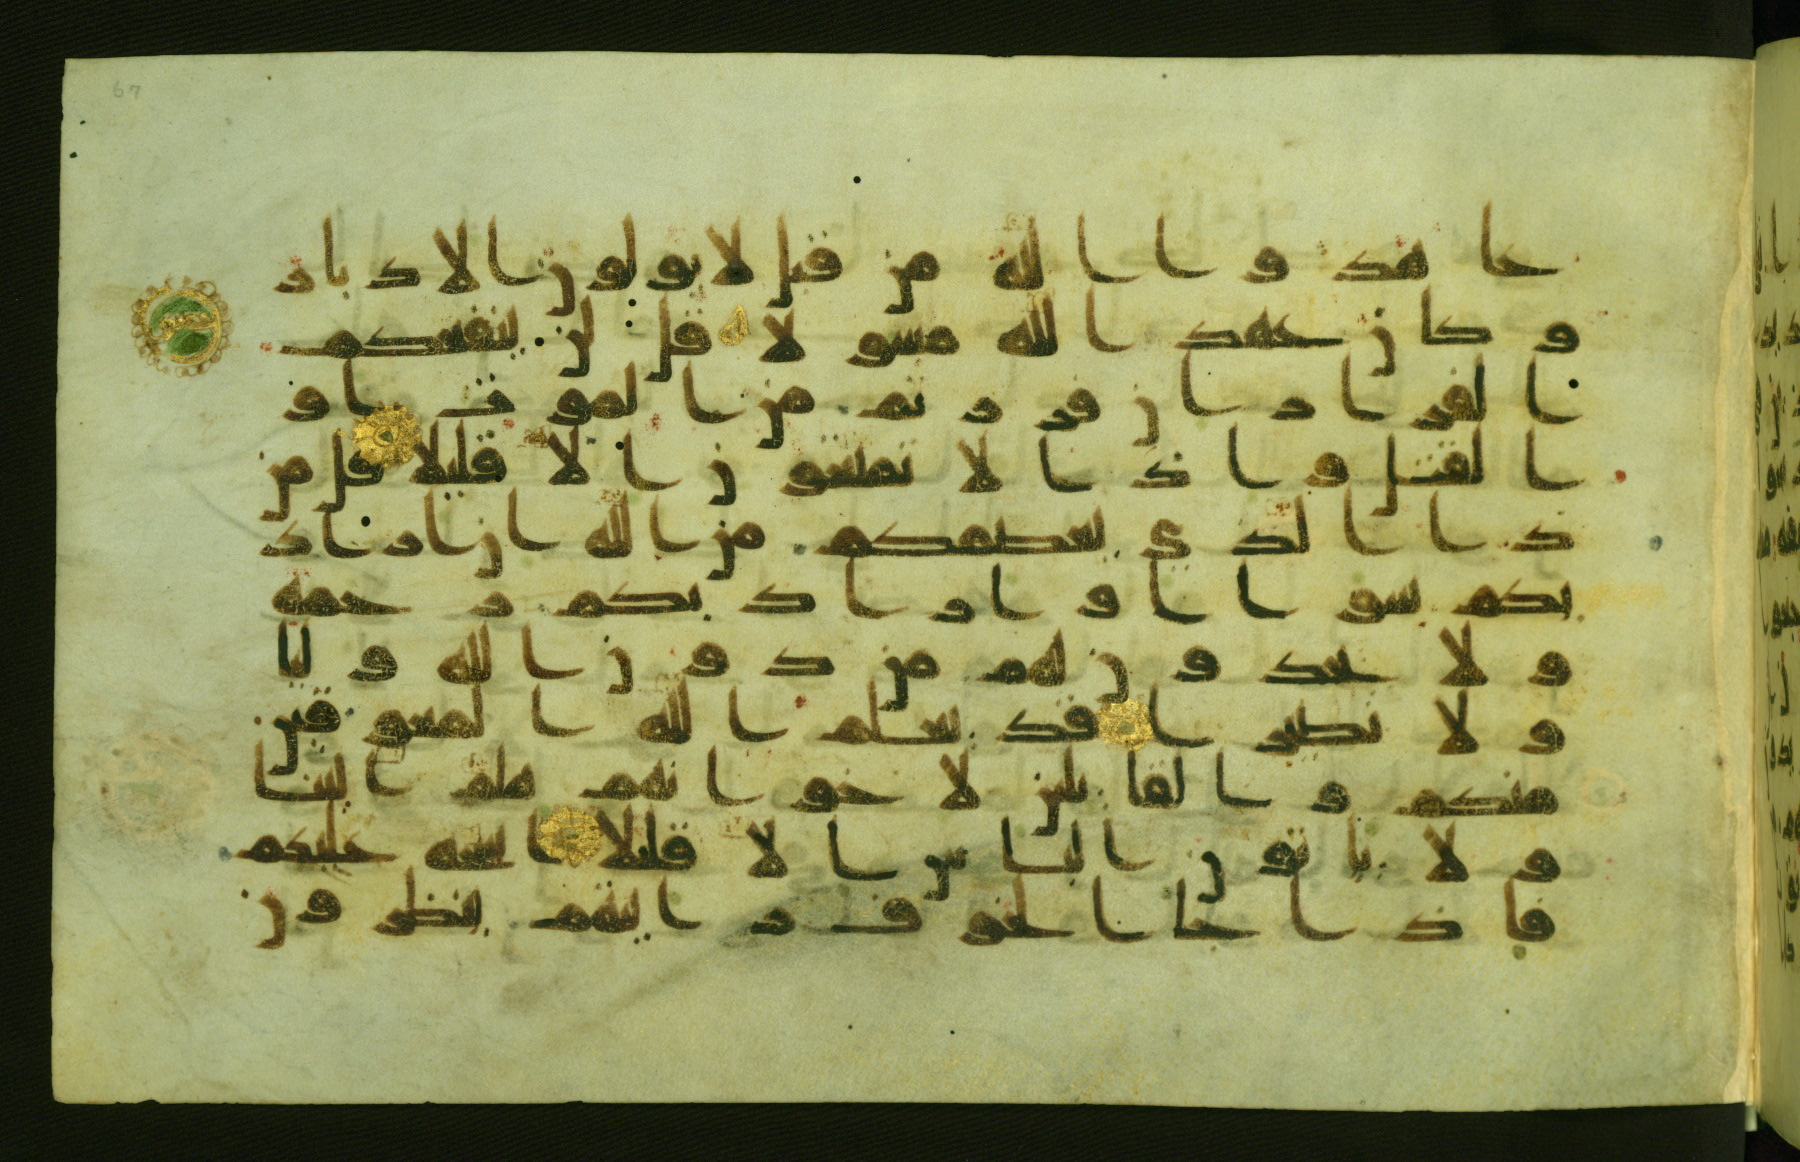 67
عاهدوا الله من قبل لا يولون الادبار
وكان عهد الله مسولا قل لن ينفعكم
الفرار ان فررتم من الموت او
القتل واذا لا تمتعون الا قليلا قل من
ذا الذي يعصمكم من الله ان اراد
بكم سوا او اراد بكم رحمة
ولا يجدون لهم من دون الله وليا
ولا نصيرا قد يعلم الله المعوقين
منكم والقايلين لاخوانهم هلم الينا
ولا ياتون الباس الا قليلا اشحة عليكم
فاذا جا الخوف رايتهم ينظرون